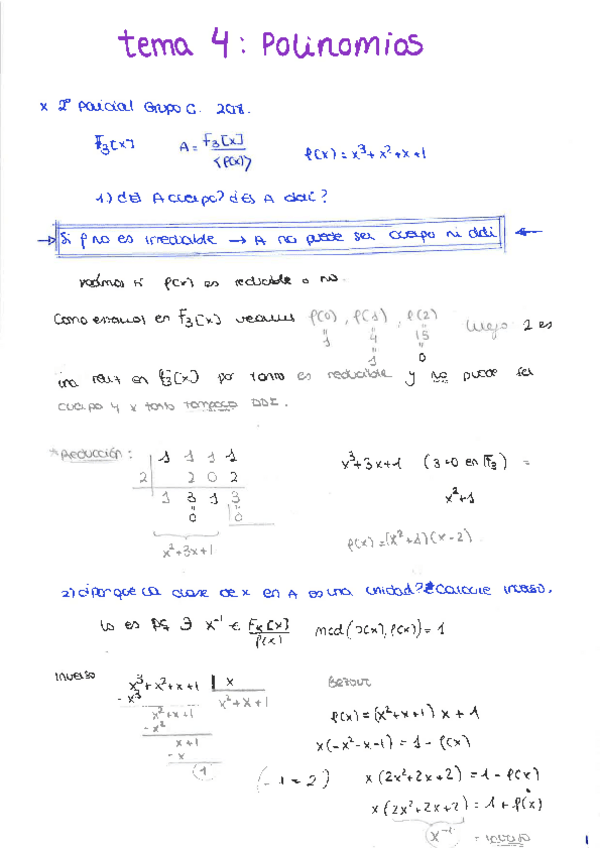 tema 4: Polinomios
x 2º Parcial Grupo C. 2018.
F₃[x] A = F₃[x] / <p(x)> p(x) = x³+x²+x+1
1) ¿Es A cuerpo? ¿Es A ddi?
→ Si p no es irreducible → A no puede ser cuerpo ni ddi ←
veamos si p(x) es reducible o no.
Como estamos en F₃[x] veamos p(0), p(1), p(2) luego 2 es
" " "
1 4 15
" "
1 0
una raíz en F₃[x] por tanto es reducible y no puede ser
cuerpo y x tanto tampoco DDI.
*Reducción: 1 1 1 1
2 | 2 0 2
1 3 1 3
" "
0 0
x²+3x+1
x²+3x+1 (3=0 en F₃) =
x²+1
p(x)=(x²+1)(x-2).
2) ¿Por qué la clase de x en A es una unidad? Calcule inverso.
lo es pq ∃ x⁻¹ ∈ F₃[x] / p(x) mcd(x, p(x))=1
Inverso
x³+x²+x+1 | x
-x³ x²+x+1
x²+x+1
-x²
x+1
-x
1
Bezout
p(x)=(x²+x+1) x + 1
x(-x²-x-1) = 1 - p(x)
(-1=2) x(2x²+2x+2) = 1 - p(x)
x(2x²+2x+2) = 1 + p(x)
x⁻¹ = inverso
1